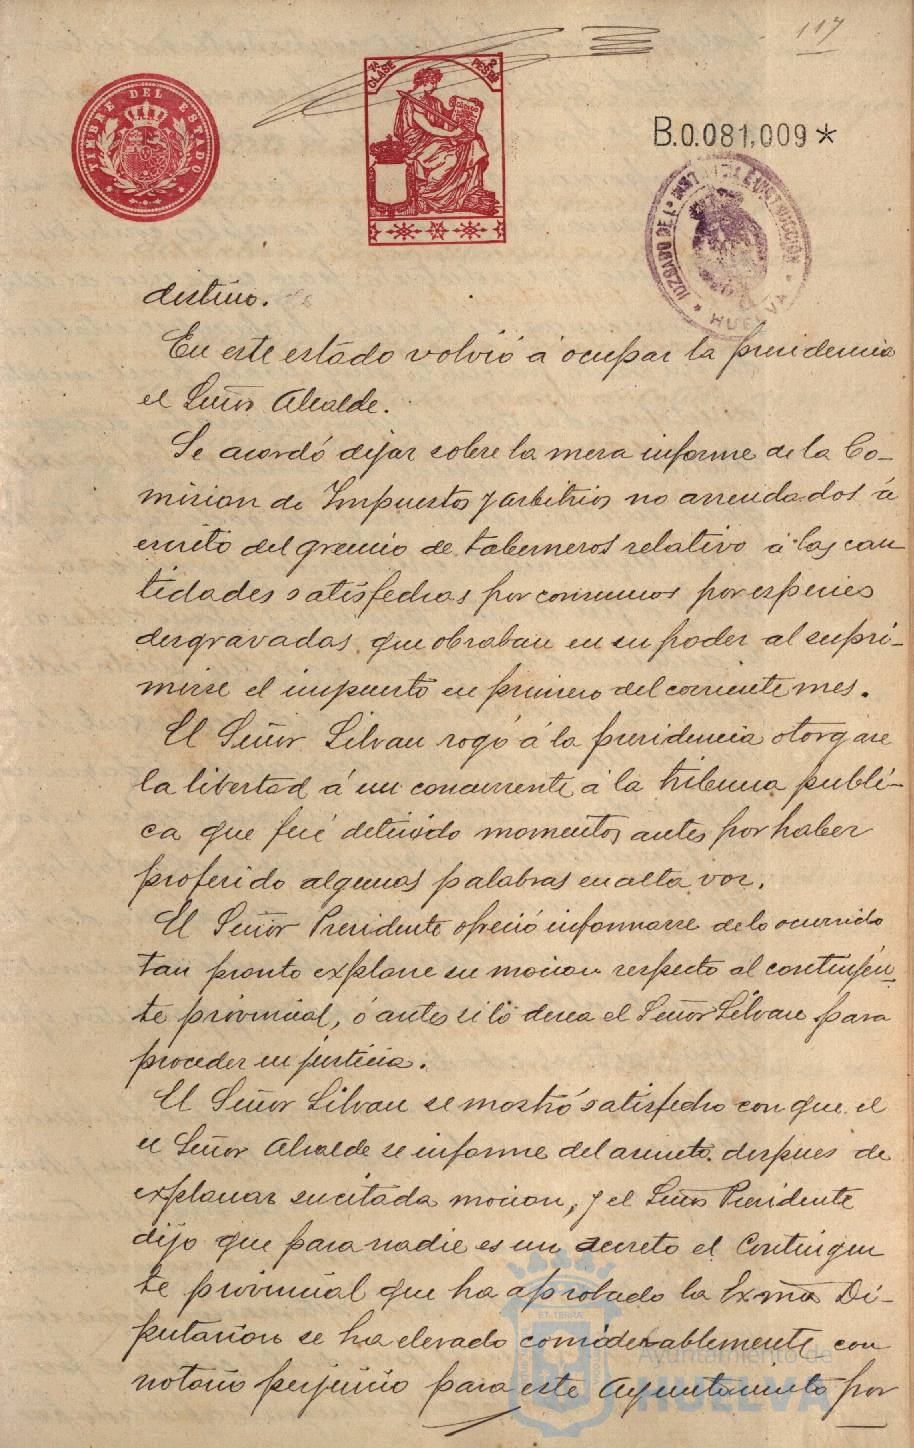 117
TIMBRE DEL ESTADO
1ª CLASE
2 PESTAS
B.0.081,009*
JUZGADO DE 1ª INSTANCIA E INSTRUCCIÓN
* HUELVA *
destino. de
En este estado volvió á ocupar la presidencia
el Señor Alcalde.
Se acordó dejar sobre la mesa informe de la Co-
mision de Impuestos y arbitrios no arrendados á
escrito del gremio de taberneros relativo á las can
tidades satisfechas por consumos por especies
desgravadas, que obraban en su poder al supri-
mirse el impuesto en primero del corriente mes.
El Señor Silvan rogó á la presidencia otorgase
la libertad á un concurrente á la tribuna públi-
ca que fué detenido momentos antes por haber
proferido algunas palabras en alta voz.
El Señor Presidente ofreció informarse de lo ocurrido
tan pronto explane su mocion respecto al contingen
te provincial, ó antes si lo desea el Señor Silvan para
proceder en justicia.
El Señor Silvan se mostró satisfecho con que el
el Señor Alcalde se informe del asunto despues de
explanar su citada mocion, y el Señor Presidente
dijo que para nadie es un secreto el Contingen
te provincial que ha aprobado la Exma Di-
putacion se ha elevado considerablemente con
notorio perjuicio para este Ayuntamiento por
Ayuntamiento de
HUELVA